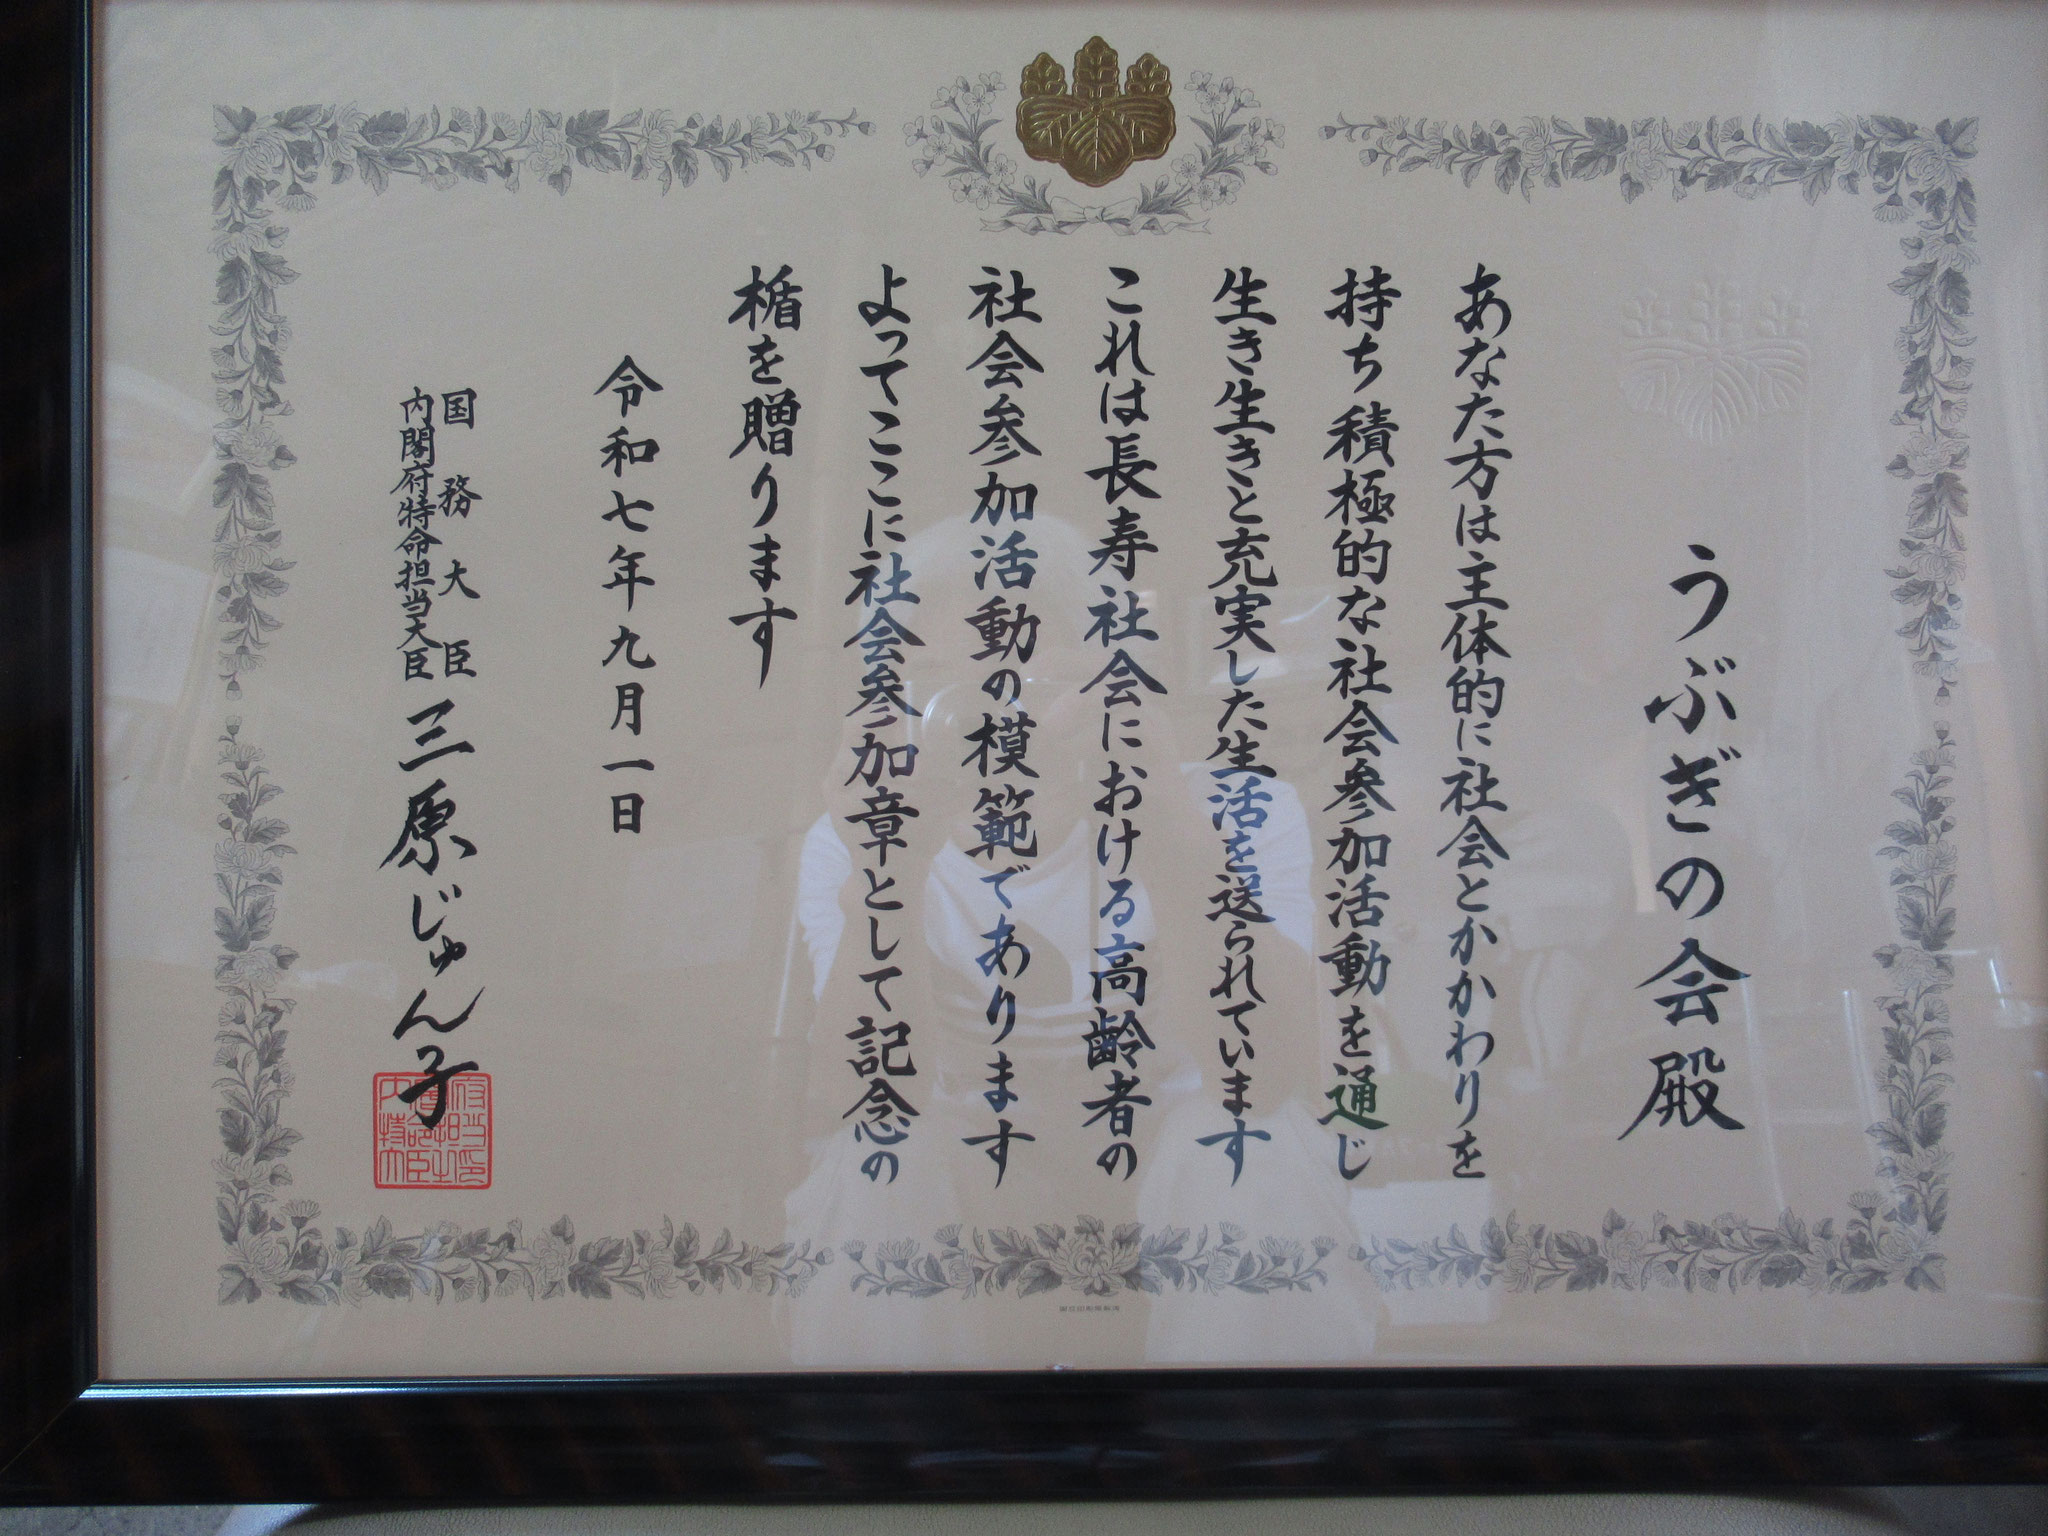 うぶぎの会殿
あなた方は主体的に社会とかかわりを
持ち積極的な社会参加活動を通じ
生き生きと充実した生活を送られています
これは長寿社会における高齢者の
社会参加活動の模範であります
よってここに社会参加章として記念の
楯を贈ります
令和七年九月一日
国務大臣
内閣府特命担当大臣
三原じゅん子